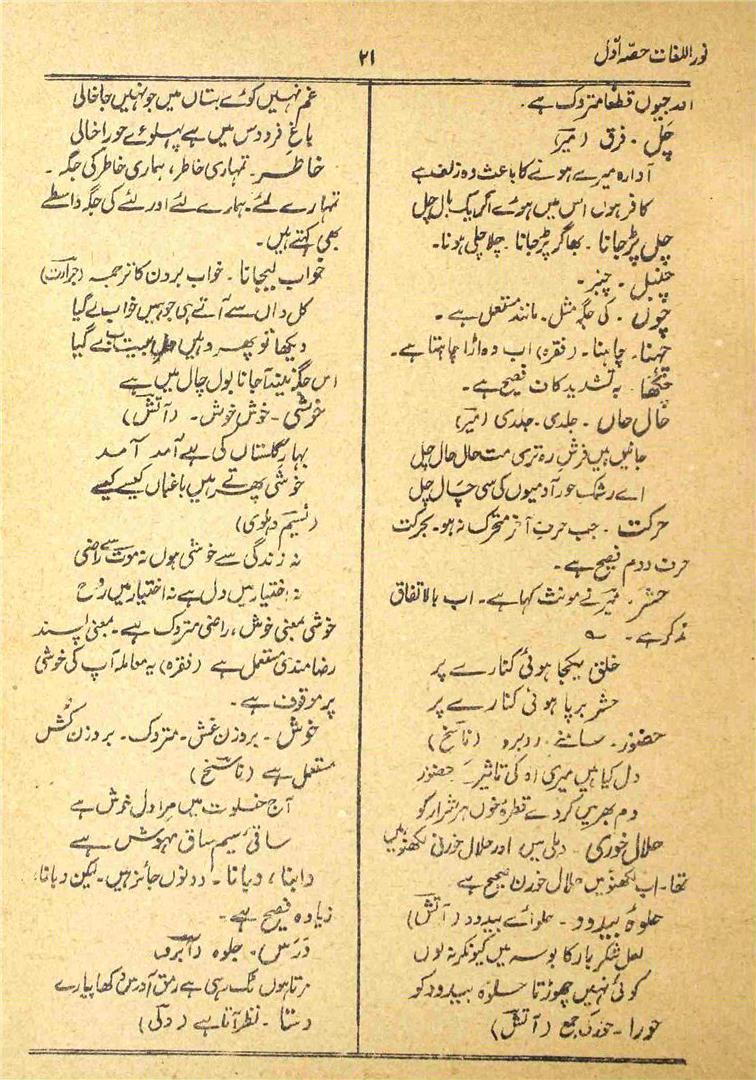 نور اللغات حصہ اوّل
۲۱
اور جیوں قطعاً متروک ہے۔
چَل۔ فرق (میرؔ)
آوارہ میرے ہونے کا باعث وہ زلف ہے
کافر ہوں اس میں ہوئے اگر یک بال چل
چل پڑجانا۔ بھاگڑ پڑجانا۔ چلا چلی ہونا۔
چنبل۔ چنبر۔
چوں۔ کی جگہ مثل۔ مانند مستعمل ہے۔
چہنا۔ چاہنا۔ (فقرہ) اب وہ اڑا چاہتا ہے۔
بہ تشدید کاف فصیح ہے۔
حال حال۔ جلدی۔ جلدی (میرؔ)
جانیں ہیں فرشِ رہ تری مت حال حال چل
اے رشک حور آدمیوں کی سی چال چل
حرکت۔ جب حرف آخر متحرک نہ ہو۔ بحرکت
حرف دوم فصیح ہے۔
حشر۔ میرؔ نے مونث کہا ہے۔ اب بالاتفاق
مذکر ہے۔ ؎
خلق یکجا ہوئی کنارے پر
حشر برپا ہوئی کنارے پر
حضور۔ سامنے۔ روبرو (ناسخؔ)
دل کیا ہیں میری آہ کی تاثیر کے حضور
دم بھر میں کردے قطرۂ خوں ہر شرار کو
حلال خوری۔ دہلی میں اور حلال خورنی لکھنؤ میں
تھا۔ اب لکھنؤ میں حلال خورن صحیح ہے
حلوۂ بیدود۔ حلوائے بیدود (آتشؔ)
لعل شکر بار کا بوسہ میں کیونکر نہ لوں
کوئی نہیں چھوڑتا حلوۂ بیدود کو
حورا۔ حور کی جمع (آتشؔ)
غم نہیں کوئے بتاں میں جو نہیں جا خالی
باغِ فردوس میں ہے پہلوئے حورا خالی
خاطر۔ تمہاری خاطر، ہماری خاطر کی جگہ۔
تمہارے لئے۔ ہمارے لئے اور لئے کی جگہ واسطے
بھی کہتے ہیں۔
خواب لیجانا۔ خواب بردن کا ترجمہ (جرأتؔ)
کل واں سے آتے ہی جو ہمیں خواب لے گیا
دیکھا تو پھر وہیں دل بیتاب لے گیا
اس جگہ نیند آجانا بول چال میں ہے
خوشی۔ خوش خوش۔ (آتشؔ)
بہار گلستاں کی ہے آمد آمد
خوشی پھرتے ہیں باغباں کیسے کیسے
(نسیمؔ دہلوی)
نہ زندگی سے خوشی ہوں نہ موت سے راضی
نہ اختیار میں دل ہے نہ اختیار میں روح
خوشی بمعنی خوش، راضی متروک ہے۔ بمعنی پسند
رضامندی مستعمل ہے (فقرہ) یہ معاملہ آپ کی خوشی
پر موقوف ہے۔
خوش۔ بروزن غش۔ متروک۔ بروزن کُش
مستعمل ہے (ناسخؔ)
آج خلوت میں مرا دل خوش ہے
ساقیٔ سیم ساق مہوش ہے
دابنا، دبانا۔ دونوں جائز ہیں۔ لیکن دبانا،
زیادہ فصیح ہے۔
دَرَس۔ جلوہ (آبروؔ)
مرتا ہوں ٹک رہی ہے رمق آ درس دکھا پیارے
دِستا۔ نظر آتا ہے (ولیؔ)